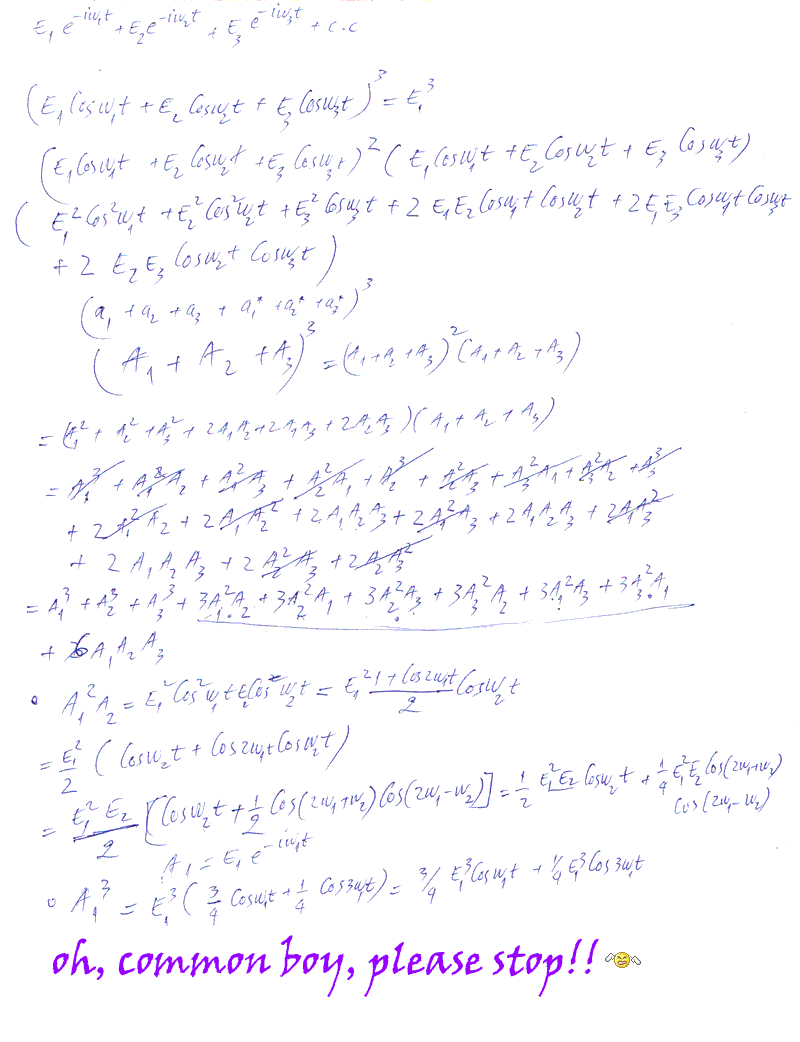 E₁ e^{-iω₁t} + E₂e^{-iω₂t} + E₃ e^{-iω₃t} + c.c
(E₁ Cosω₁t + E₂ Cosω₂t + E₃ Cosω₃t)³ = E₁³
(E₁Cosω₁t + E₂ Cosω₂t + E₃ Cosω₃t)² (E₁Cosω₁t + E₂Cosω₂t + E₃ Cosω₃t)
(E₁² Cos²ω₁t + E₂² Cos²ω₂t + E₃² Cosω₃t + 2 E₁E₂Cosω₁t Cosω₂t + 2E₁E₃Cosω₁t Cosω₃t
+ 2 E₂E₃ Cosω₂t Cosω₃t)
(a₁ + a₂ + a₃ + a₁* + a₂* + a₃*)³
(A₁ + A₂ + A₃)³ = (A₁+A₂+A₃)² (A₁+A₂+A₃)
= (A₁² + A₂² + A₃² + 2A₁A₂ + 2A₁A₃ + 2A₂A₃)(A₁ + A₂ + A₃)
= A₁³ + A₁²A₂ + A₁²A₃ + A₂²A₁ + A₂³ + A₂²A₃ + A₃²A₁ + A₃²A₂ + A₃³
+ 2A₁²A₂ + 2A₁A₂² + 2A₁A₂A₃ + 2A₁²A₃ + 2A₁A₂A₃ + 2A₁A₃²
+ 2A₁A₂A₃ + 2A₂²A₃ + 2A₂A₃²
= A₁³ + A₂³ + A₃³ + 3A₁²A₂ + 3A₂²A₁ + 3A₂²A₃ + 3A₃²A₂ + 3A₁²A₃ + 3A₃²A₁
+ 6A₁A₂A₃
∘ A₁²A₂ = E₁²Cos²ω₁t E₂Cosω₂t = E₁² (1+Cos2ω₁t)/2 Cosω₂t
= E₁²/2 (Cosω₂t + Cos2ω₁t Cosω₂t)
= E₁²E₂/2 [Cosω₂t + 1/2 Cos(2ω₁+ω₂) Cos(2ω₁-ω₂)] = 1/2 E₁²E₂ Cosω₂t + 1/4 E₁²E₂ Cos(2ω₁+ω₂)
Cos(2ω₁-ω₂)
A₁ = E₁e^{-iω₁t}
∘ A₁³ = E₁³ (3/4 Cosω₁t + 1/4 Cos3ω₁t) = 3/4 E₁³Cosω₁t + 1/4 E₁³Cos3ω₁t
oh, common boy, please stop!!